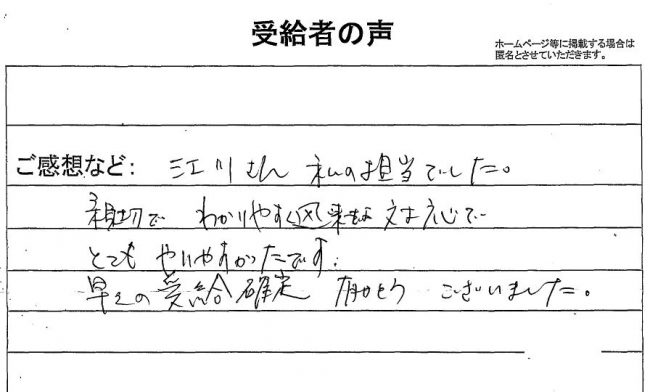 受給者の声
ホームページ等に掲載する場合は
匿名とさせていただきます。
ご感想など: 江川さん 私の担当でした。
親切で わかりやすく迅速な対応で
とても やりやすかったです。
早々の受給確定 有がとう ございました。